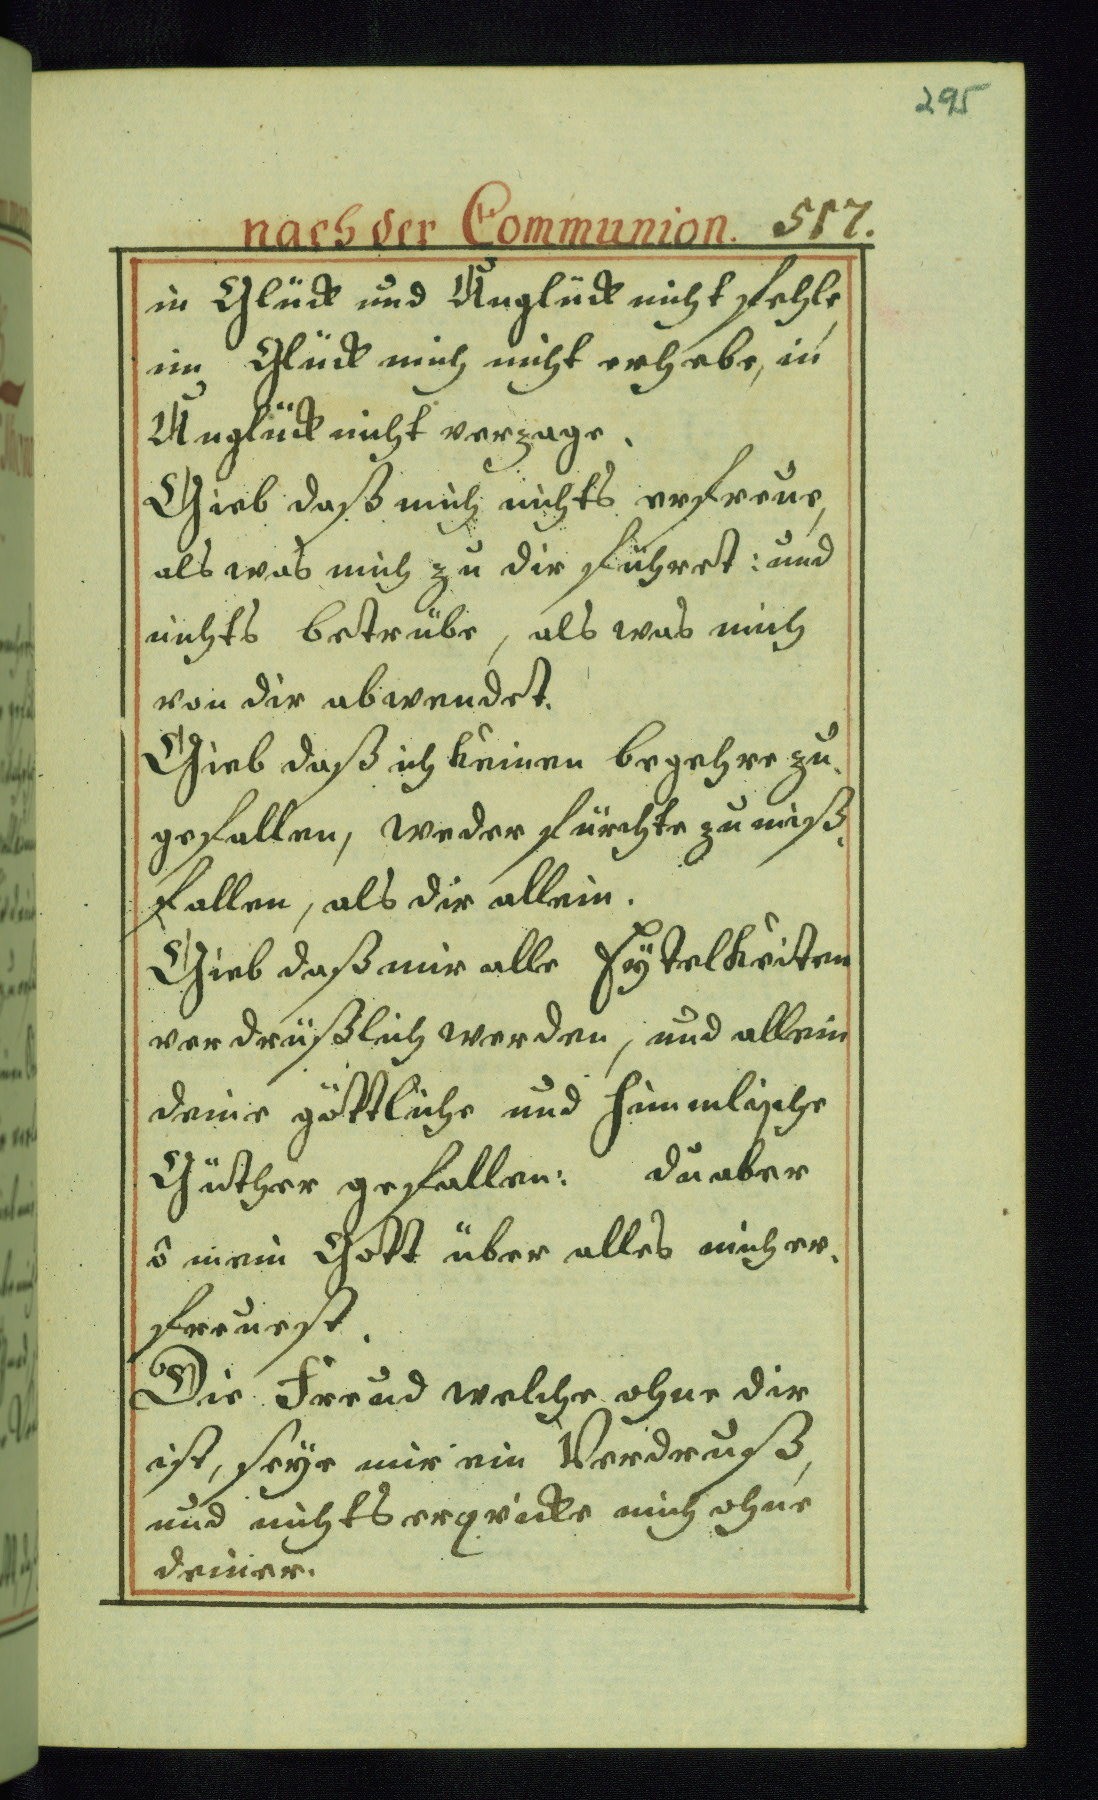 295
nach der Communion. 517.
in Glück und Unglück nicht fehle,
im Glück mich nicht erhebe, in
Unglück nicht verzage.
Gieb daß mich nichts erfreue,
als was mich zu dir führet: und
nichts betrübe, als was mich
von dir abwendet.
Gieb daß ich keinen begehre zu
gefallen, weder fürchte zu miß-
fallen, als dir allein.
Gieb daß mir alle Eÿtelkeiten
verdrüßlich werden, und allein
deine göttliche und himmlische
Güther gefallen: du aber
ô mein Gott über alles mich er-
freuest.
Die Freud welche ohne dir
ist, seÿe mir ein Verdruß,
und nichts erqvicke mich ohne
deiner.